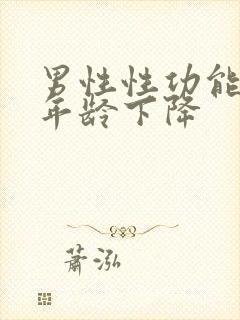 男性性功能
年龄下降
萧泓